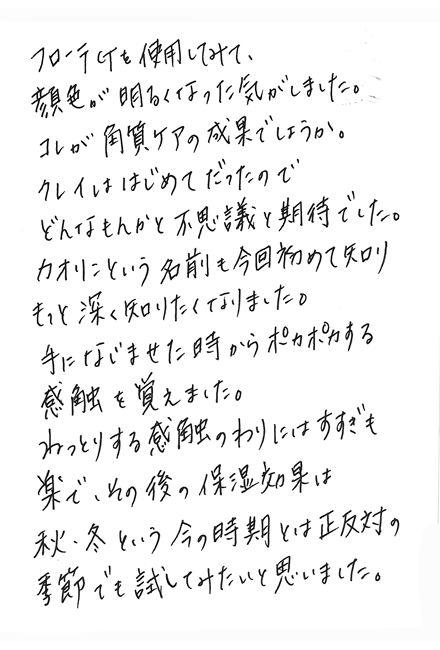 フローテCTを使用してみて、
顔色が明るくなった気がしました。
コレが角質ケアの成果でしょうか。
クレイははじめてだったので
どんなもんかと不思議と期待でした。
カオリンという名前も今回初めて知り
もっと深く知りたくなりました。
手になじませた時からポカポカする
感触を覚えました。
ねっとりする感触のわりにはすすぎも
楽で、その後の保湿効果は
秋・冬という今の時期とは正反対の
季節でも試してみたいと思いました。